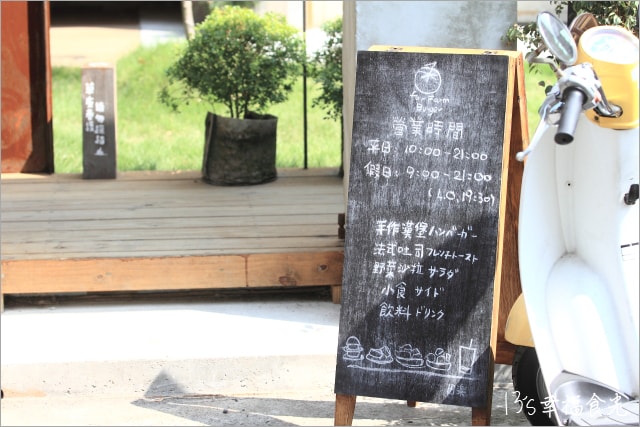 Farm
Burger
營業時間
平日：10:00-21:00
假日：9:00-21:00
(L.O. 19:30)
手作漢堡 ハンバーガー
法式吐司 フレンチトースト
野菜沙拉 サラダ
小食 サイド
飲料 ドリンク
13's幸福食光